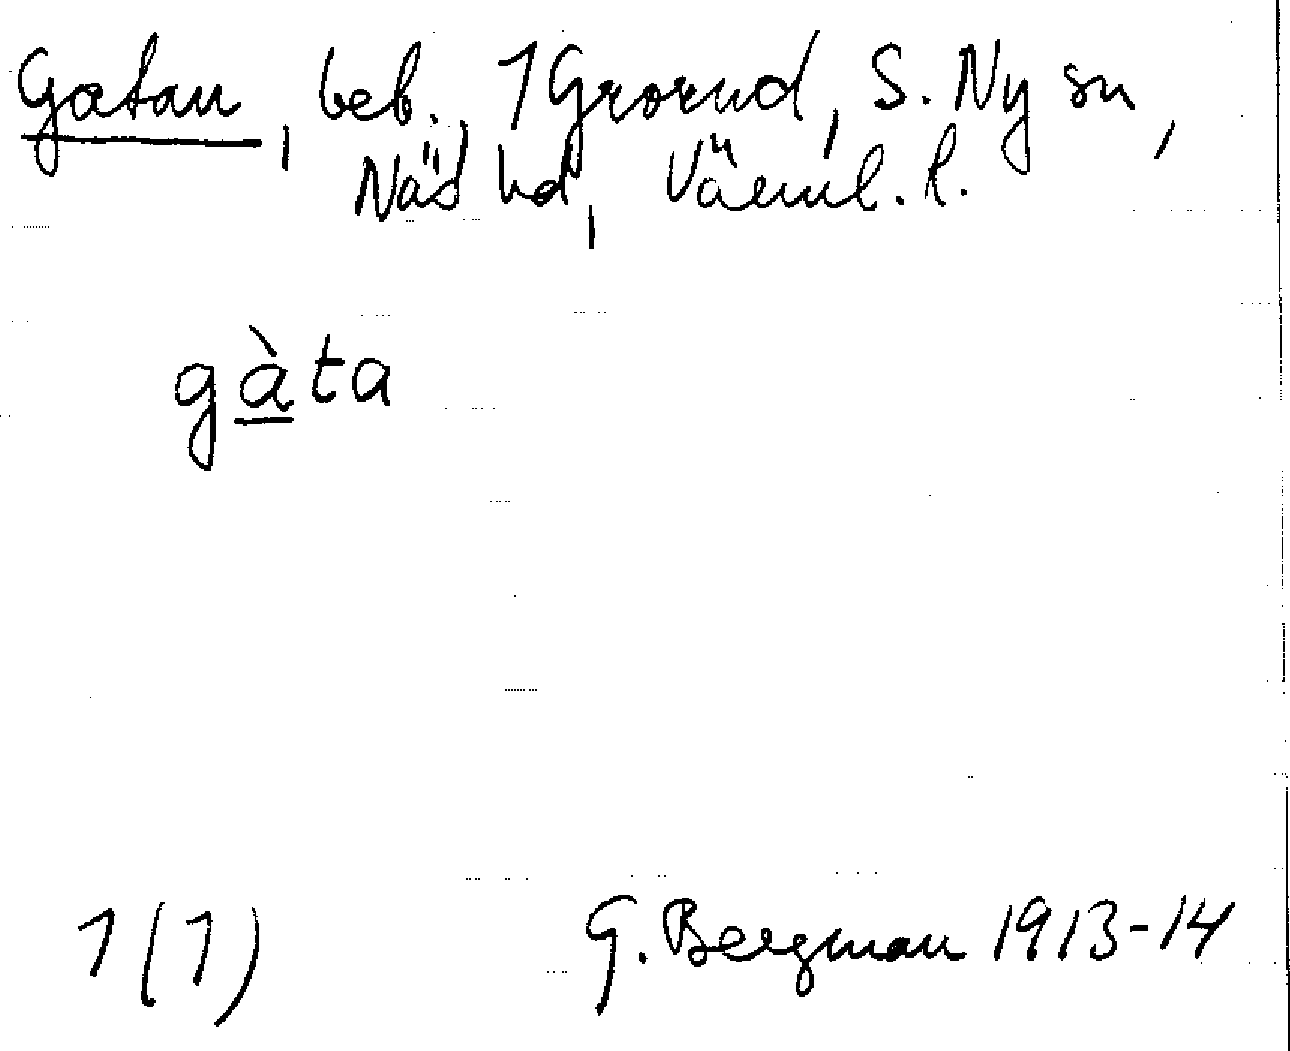 Gatan, beb., 1 Grorud, S. Ny sn,
Näs hd, Värml. l.
gàta
1(1) G. Bergman 1913-14